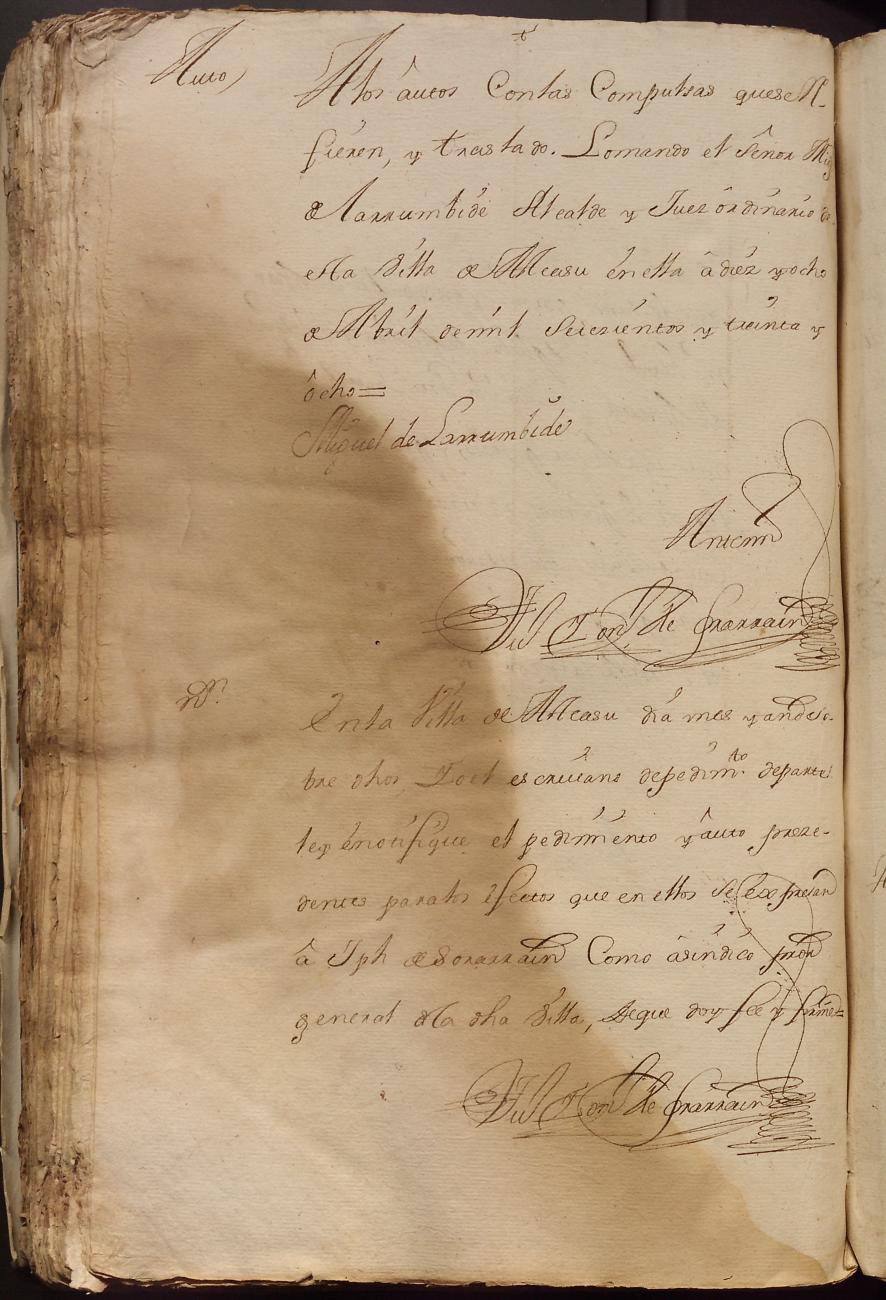 Auto
A los autos Con las Compulsas que se Re-
fieren, y traslado. Lo mando el señor Mig
de Larrumbide Alcalde y Juez ordinario de
esta villa de Alcasu en ella â diez y ocho
de Abril de mil Setezientos y treinta y
ôcho=
Miguel de Larrumbide
Antemi
de Grarrain
En la Villa de Alcasu dia mes y año so-
bre dhos, Yo el escriuano de pedimto de parte
ley é notifique el pedimiento y âuto preze-
dentes para los efectos que en ellos se expresan
â Jph de Sorarrain Como â sindico prôr
general de la dha villa, de que doy feé y firmé=
de Grarrain